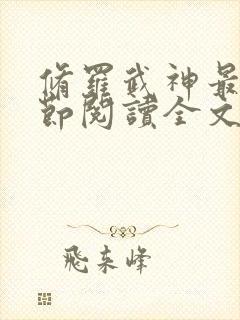 脩羅武神最
節閱讀全文
飛來峰